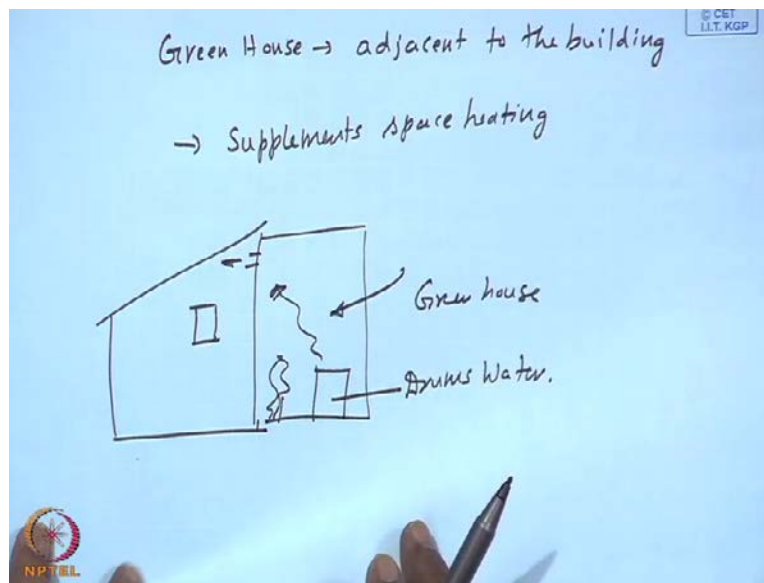 © CET
I.I.T. KGP
Green House → adjacent to the building
→ Supplements space heating
Green house
Drums Water.
NPTEL